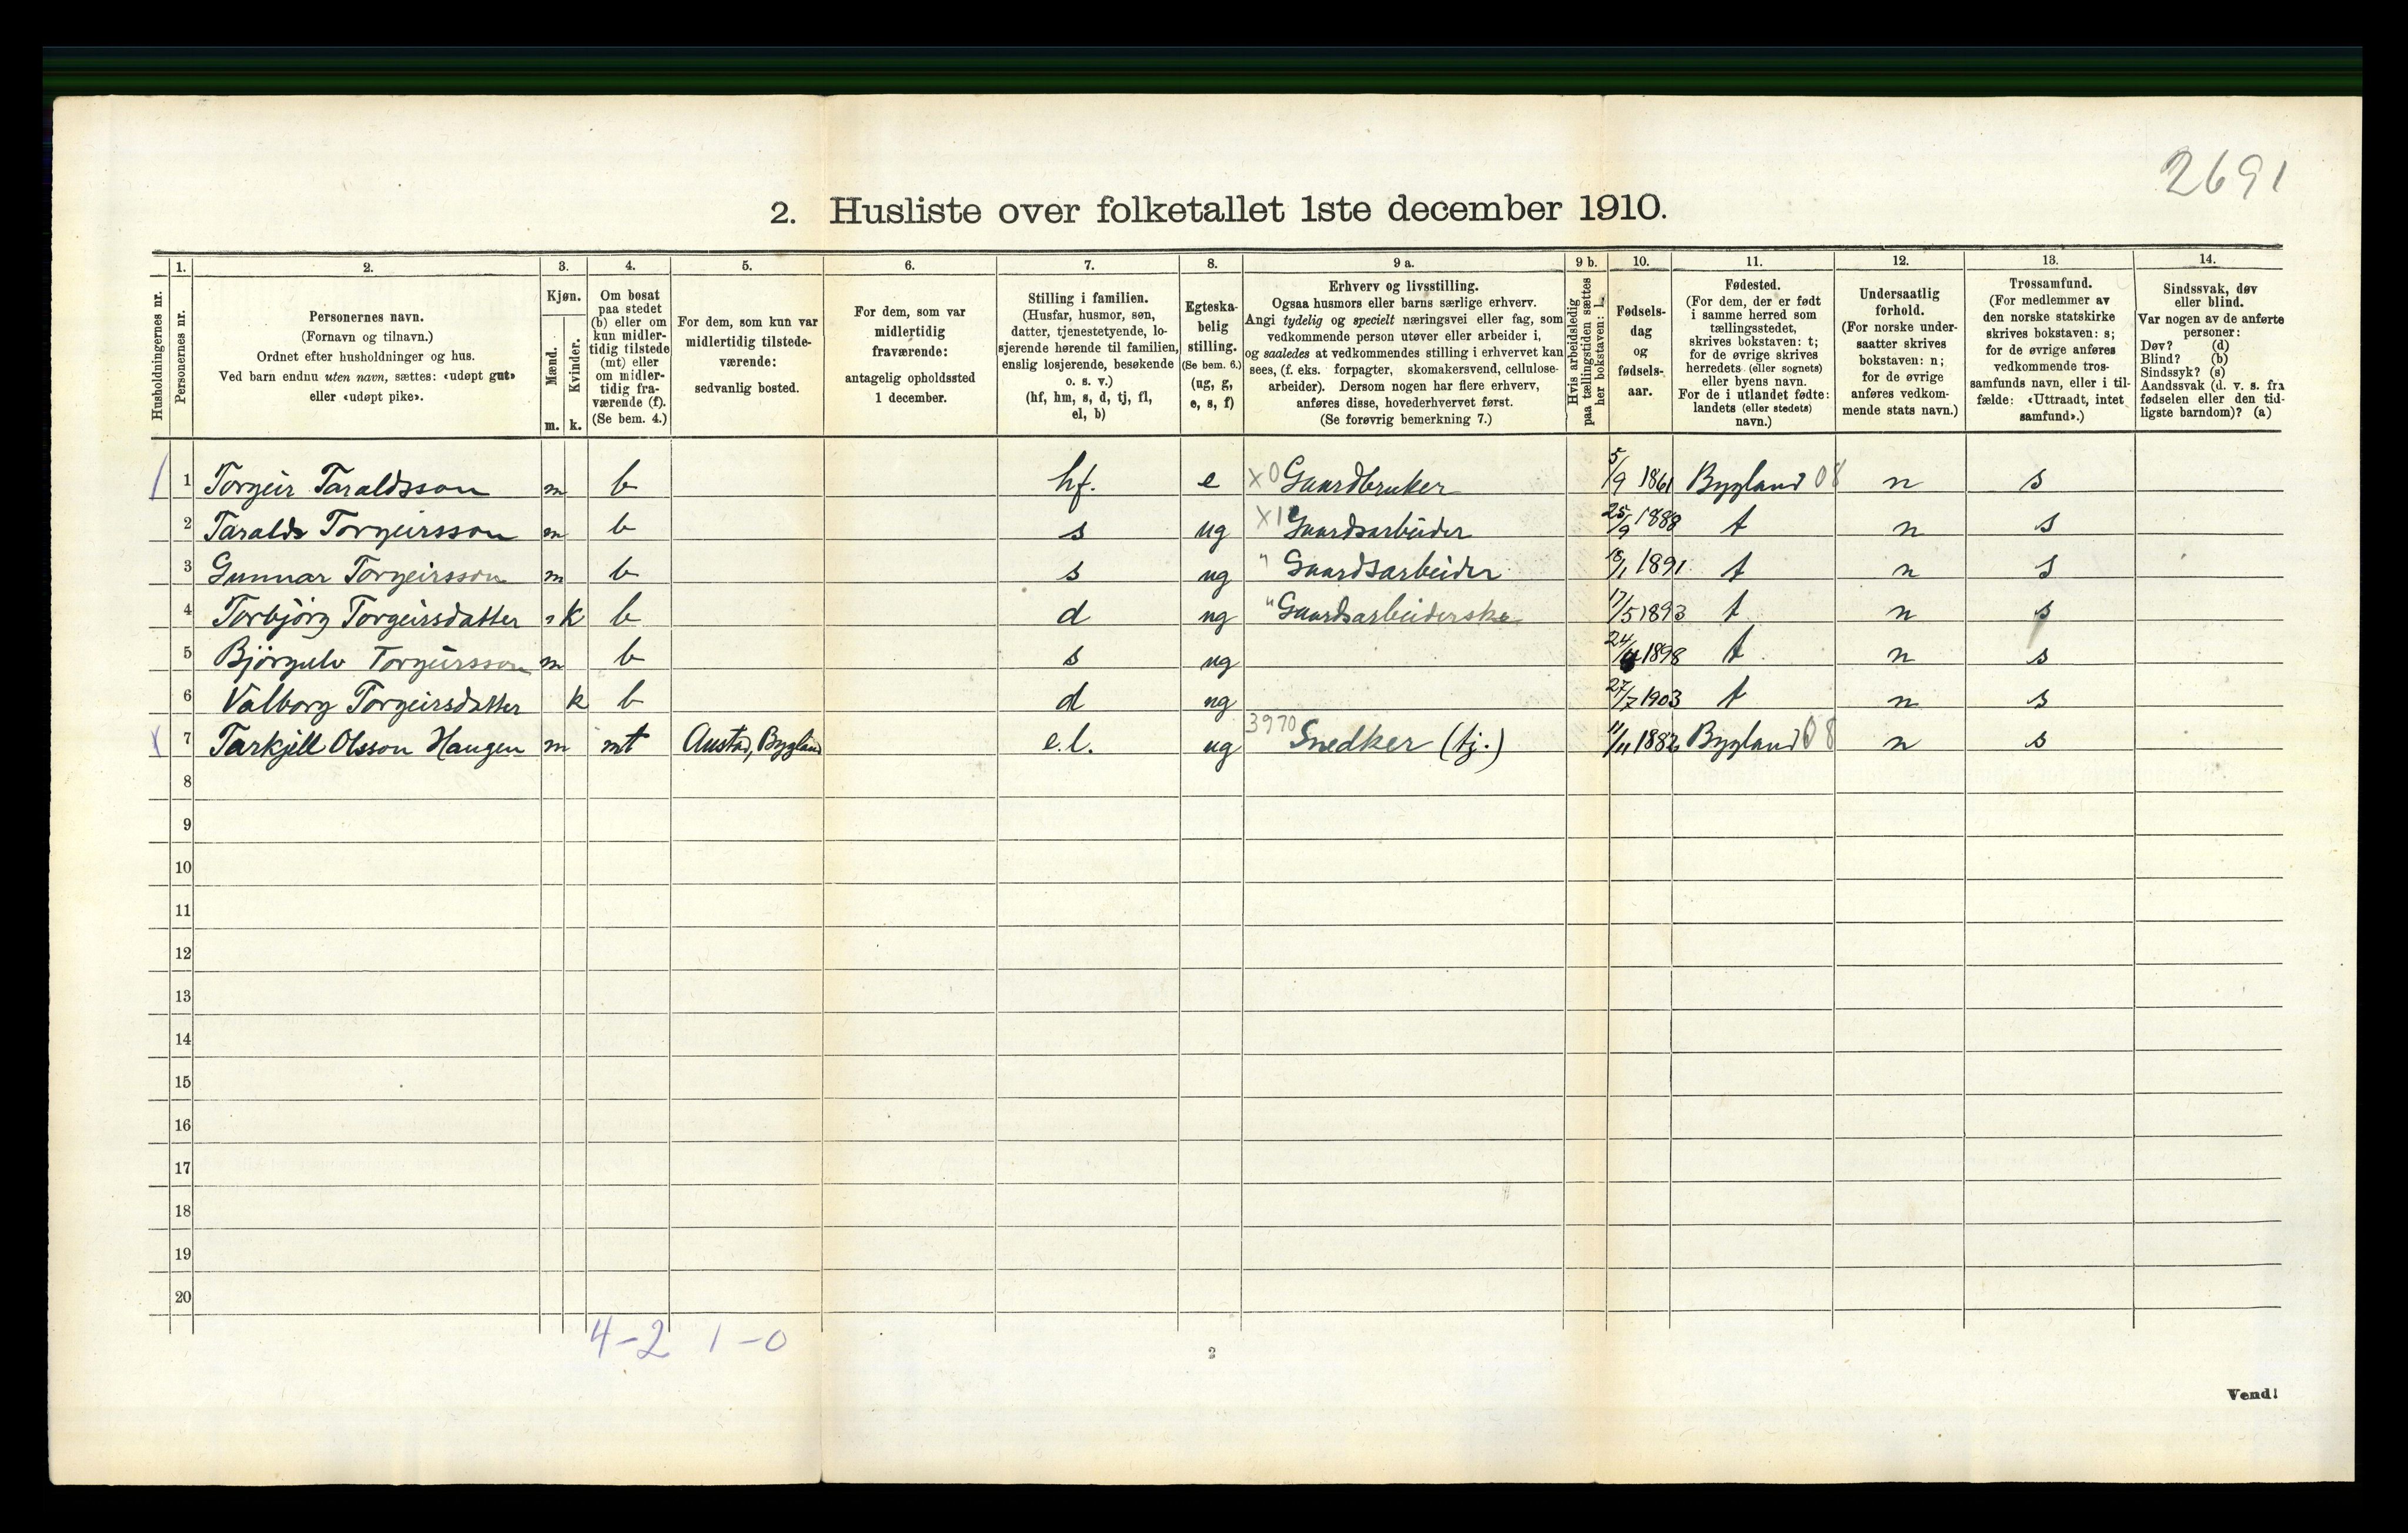 2691
2. Husliste over folketallet 1ste december 1910.
Husholdningernes nr.
1. Personernes nr.
2. Personernes navn. (Fornavn og tilnavn.) Ordnet efter husholdninger og hus. Ved barn endnu uten navn, sættes: «udøpt gut» eller «udøpt pike».
3. Kjøn. Mænd. m. Kvinder. k.
4. Om bosat paa stedet (b) eller om kun midlertidig tilstede (mt) eller om midlertidig fraværende (f). (Se bem. 4.)
5. For dem, som kun var midlertidig tilstedeværende: sedvanlig bosted.
6. For dem, som var midlertidig fraværende: antagelig opholdssted 1 december.
7. Stilling i familien. (Husfar, husmor, søn, datter, tjenestetyende, losjerende hørende til familien, enslig losjerende, besøkende o. s. v.) (hf, hm, s, d, tj, fl, el, b)
8. Egteskabelig stilling. (Se bem. 6.) (ug, g, e, s, f)
9 a. Erhverv og livsstilling. Ogsaa husmors eller barns særlige erhverv. Angi tydelig og specielt næringsvei eller fag, som vedkommende person utøver eller arbeider i, og saaledes at vedkommendes stilling i erhvervet kan sees, (f. eks. forpagter, skomakersvend, cellulosearbeider). Dersom nogen har flere erhverv, anføres disse, hovederhvervet først. (Se forøvrig bemerkning 7.)
9 b. Hvis arbeidsledig paa tællingstiden sættes her bokstaven: l.
10. Fødselsdag og fødselsaar.
11. Fødested. (For dem, der er født i samme herred som tællingsstedet, skrives bokstaven: t; for de øvrige skrives herredets (eller sognets) eller byens navn. For de i utlandet fødte: landets (eller stedets) navn.)
12. Undersaatlig forhold. (For norske undersaatter skrives bokstaven: n; for de øvrige anføres vedkommende stats navn.)
13. Trossamfund. (For medlemmer av den norske statskirke skrives bokstaven: s; for de øvrige anføres vedkommende trossamfunds navn, eller i tilfælde: «Uttraadt, intet samfund».)
14. Sindssvak, døv eller blind. Var nogen av de anførte personer: Døv? (d) Blind? (b) Sindssyk? (s) Aandssvak (d. v. s. fra fødselen eller den tidligste barndom)? (a)
1 Torgeir Taraldsson m b hf. e X0 Gaardbruker 5/9 1861 Bygland 08 n s
2 Taralds Torgeirsson m b s ug X1 Gaardsarbeider 25/9 1888 t n s
3 Gunnar Torgeirsson m b s ug " Gaardsarbeider 18/1 1891 t n s
4 Torbjörg Torgeirsdatter k b d ug " Gaardsarbeiderske 17/5 1893 t n s
5 Björgulv Torgeirsson m b s ug 1898 t n s
6 Valborg Torgeirsdatter k b d ug 27/7 1903 t n s
7 Tarkjell Olsson Haugen m mt Austad, Bygland e.l. ug 3970 Snedker (tj.) 11/11 1882 Bygland 08 n s
8
9
10
11
12
13
14
15
16
17
18
19
20
4-2 1-0
2
Vend!